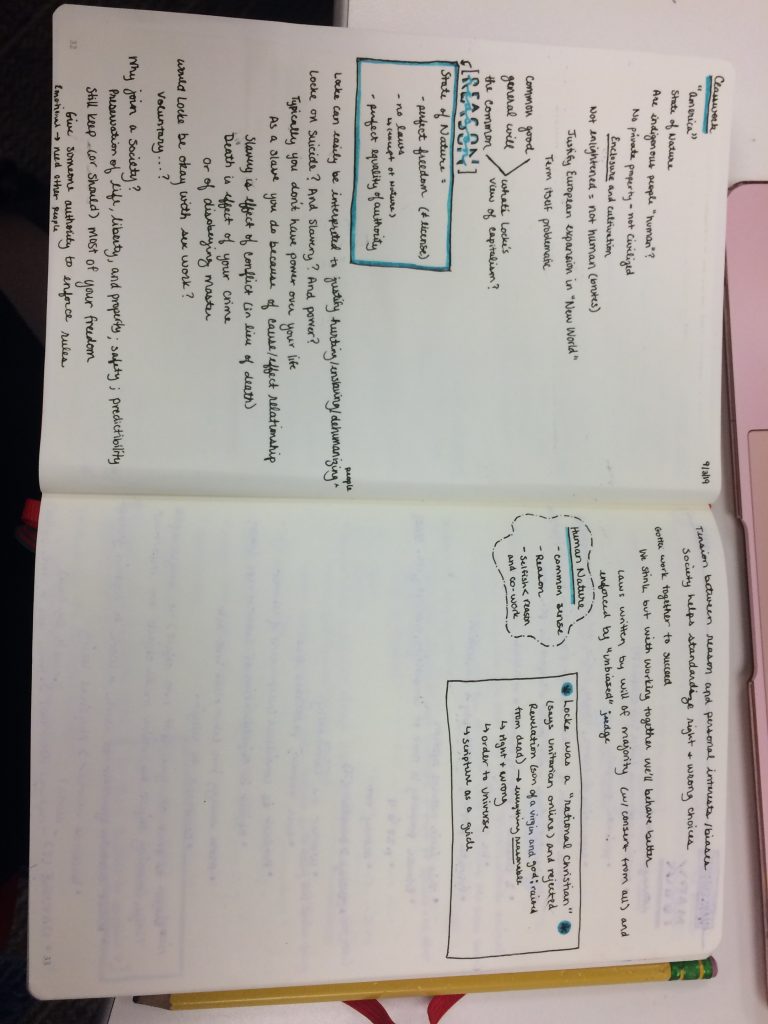 Classwork
9/3/19
"America"
State of Nature
Are indigenous people "human"?
No private property = not civilized
Enclosure and cultivation
Not enlightened = not human (brutes)
Justify European expansion in "New World"
Term itself problematic
Common good
general will
the common
what's Locke's
view of capitalism?
[REASON]
State of Nature =
- perfect freedom (≠ license)
- no laws
(except of nature)
- perfect equality of authority
Locke can easily be interpreted to justify hurting/enslaving/dehumanizing people
Locke on suicide? And slavery? And power?
Typically you don't have power over your life
As a slave you do because of cause/effect relationship
Slavery is effect of conflict (in lieu of death)
Death is effect of your crime
or of disobeying master
Would Locke be okay with sex work?
Voluntary...?
Why join a society?
Preservation of life, liberty, and property; safety; predictibility
Still keep (or should) most of your freedom
Give someone authority to enforce rules
Emotional → need other people
32
Tension between reason and personal interests/biases
Society helps standardize right + wrong choices
Gotta work together to succeed
We stink but with working together we'll behave better
Laws written by will of majority (w/ consent from all) and
enforced by "unbiased" judge
Human Nature
- common sense
- Reason
- selfish < reason
and co-work
Locke was a "rational Christian"
(says unitarian online) and rejected
Revelation (son of a virgin and god; raised
from dead) → everything reasonable
↳ right + wrong
↳ order to universe
↳ scripture as a guide
33